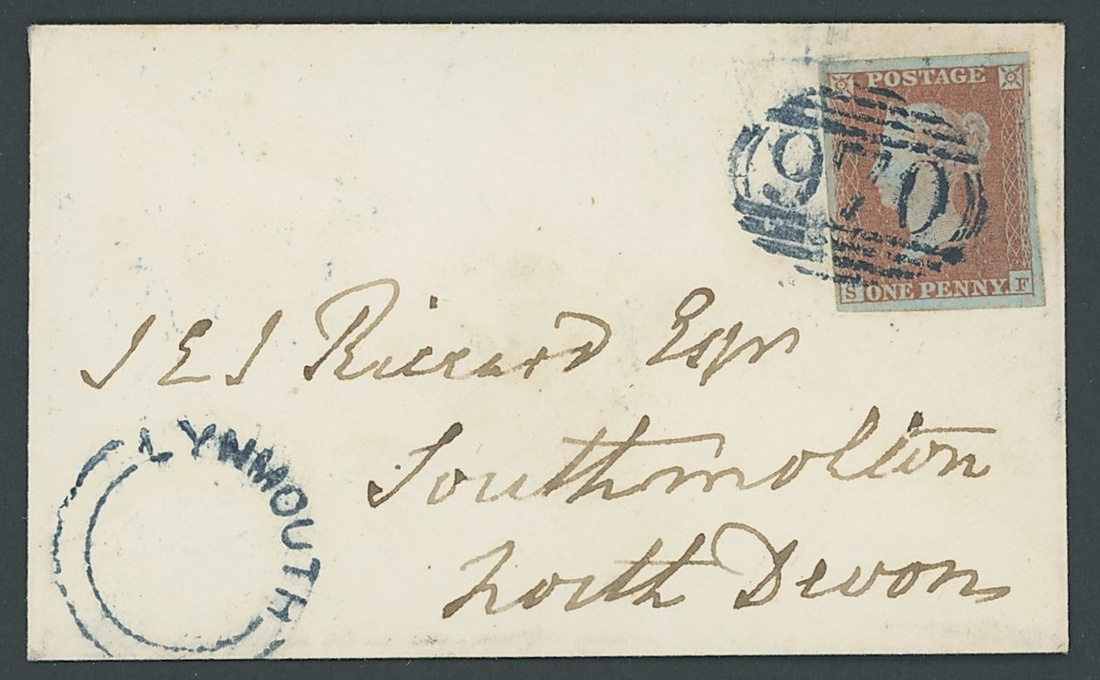 POSTAGE
920
S ONE PENNY. F
J E J Riccard Esqr
Southmolton
North Devon
LYNMOUTH